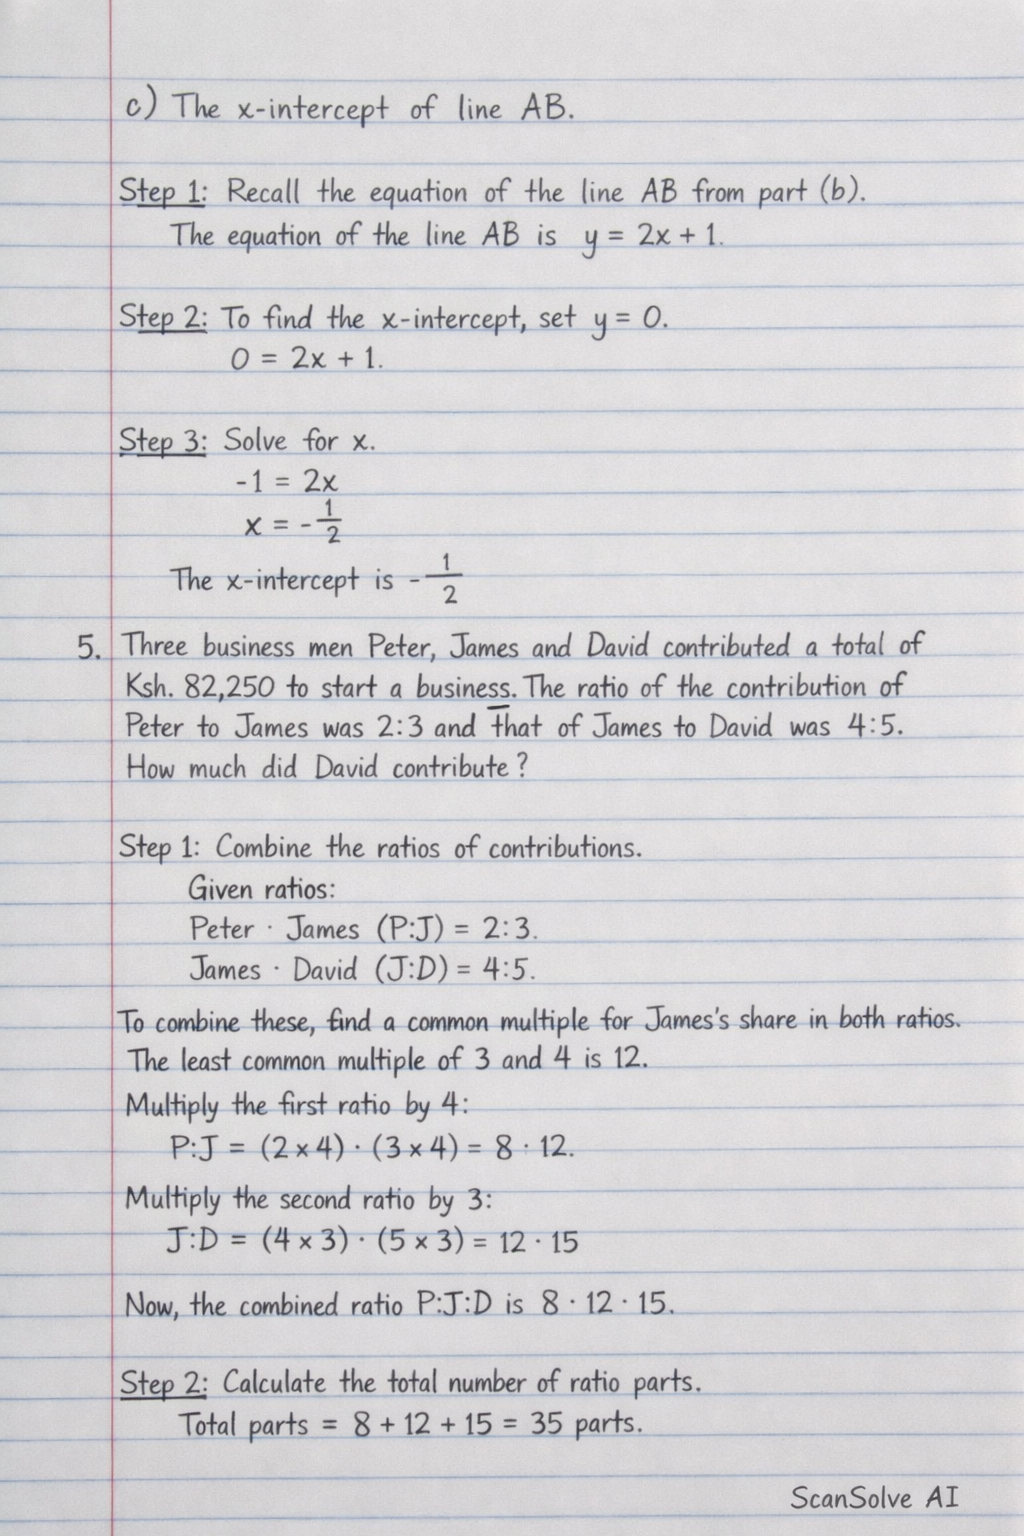 c) The x-intercept of line AB.
Step 1: Recall the equation of the line AB from part (b).
The equation of the line AB is y = 2x + 1.
Step 2: To find the x-intercept, set y = 0.
0 = 2x + 1.
Step 3: Solve for x.
-1 = 2x
x = -1/2
The x-intercept is -1/2
5. Three business men Peter, James and David contributed a total of
Ksh. 82,250 to start a business. The ratio of the contribution of
Peter to James was 2:3 and that of James to David was 4:5.
How much did David contribute?
Step 1: Combine the ratios of contributions.
Given ratios:
Peter · James (P:J) = 2:3.
James · David (J:D) = 4:5.
To combine these, find a common multiple for James's share in both ratios.
The least common multiple of 3 and 4 is 12.
Multiply the first ratio by 4:
P:J = (2 × 4) · (3 × 4) = 8 · 12.
Multiply the second ratio by 3:
J:D = (4 × 3) · (5 × 3) = 12 · 15
Now, the combined ratio P:J:D is 8 · 12 · 15.
Step 2: Calculate the total number of ratio parts.
Total parts = 8 + 12 + 15 = 35 parts.
ScanSolve AI